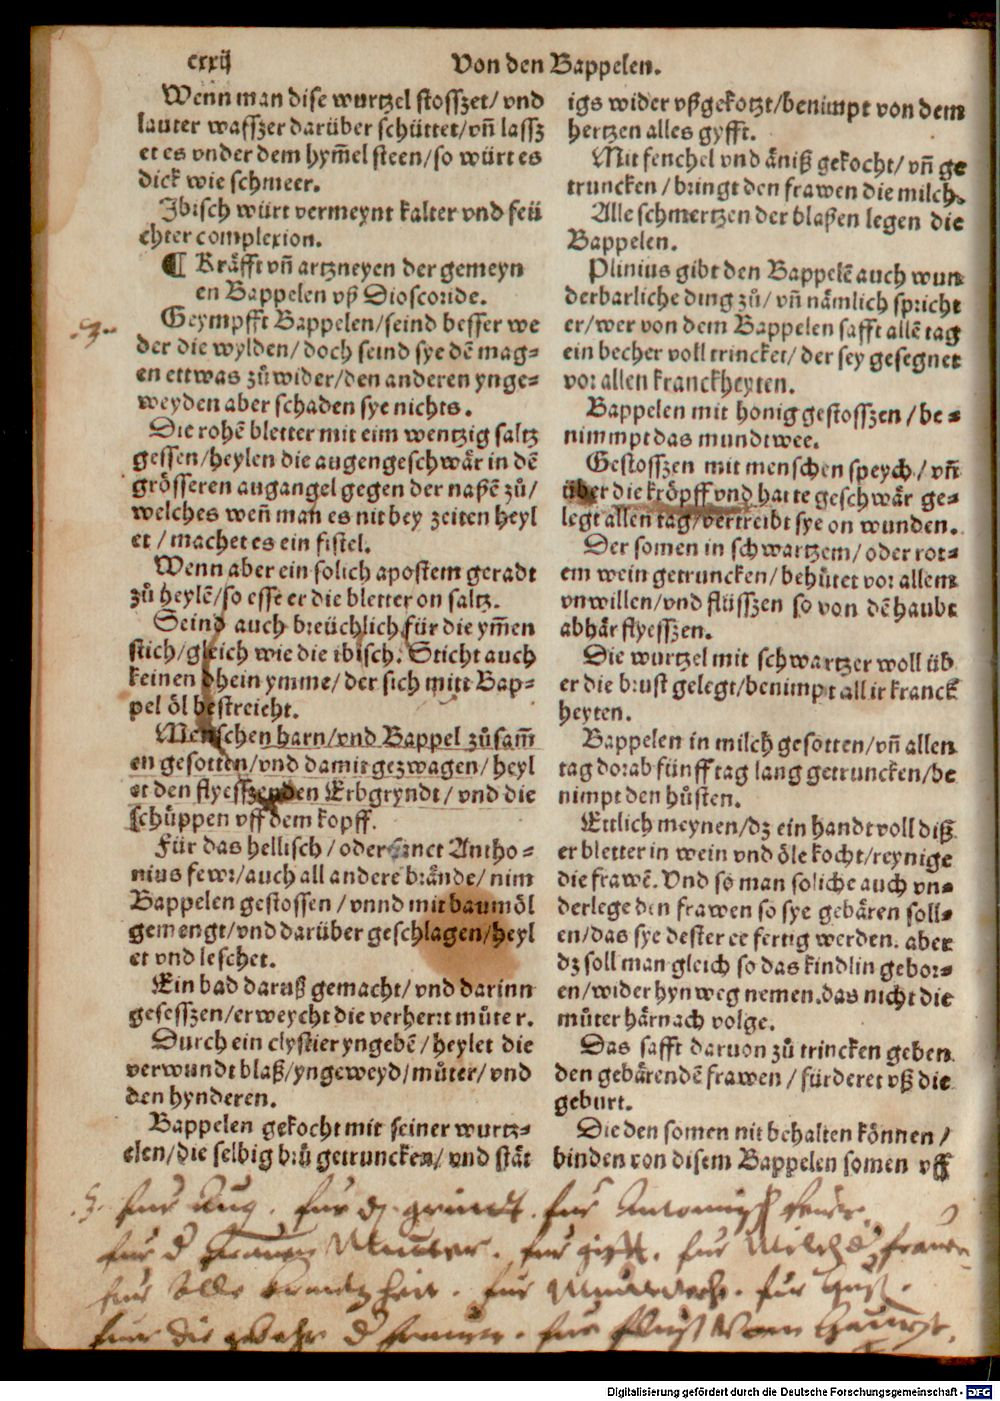 cxxij
Von den Bappelen.
Wenn man dise wurtzel stosszet/vnd
lauter wasszer darüber schüttet/vñ lassz
et es vnder dem hym̃el steen/so würt es
dick wie schmeer.
Ibisch würt vermeynt kalter vnd feü
chter complexion.
¶ Kräfft vñ artzneyen der gemeyn
en Bappelen vß Dioscoride.
Geympfft Bappelen/seind besser we
der die wylden/doch seind sye dẽ mag⸗
en ettwas zůwider/den anderen ynge⸗
weyden aber schaden sye nichts.
Die rohẽ bletter mit eim wentzig saltz
gessen/heylen die augengeschwär in dẽ
grösseren augangel gegen der naßẽ zů/
welches weñ man es nit bey zeiten heyl
et/machet es ein fistel.
Wenn aber ein solich apostem geradt
zů heylẽ/so esse er die bletter on saltz.
Seind auch breüchlich für die ym̃en
stich/gleich wie die ibisch. Sticht auch
keinen dhein ymme/der sich mitt Bap⸗
pel öl bestreicht.
Menschen harn/vnd Bappel zůsam̃
en gesotten/vnd damit gezwagen/heyl
et den flyesszenden Erbgryndt/vnd die
schüppen vff dem kopff.
Für das hellisch/oder sanct Antho⸗
nius fewr/auch all andere brände/nim
Bappelen gestossen/vnnd mit baumöl
gemengt/vnd darüber geschlagen/heyl
et vnd leschet.
Ein bad daruß gemacht/vnd darinn
gesesszen/erweycht die verhert můter.
Durch ein clystier yngebẽ/heylet die
verwundt blaß/yngeweyd/můter/vnd
den hynderen.
Bappelen gekocht mit seiner wurtz⸗
elen/die selbig brů getruncken/vnd stät
igs wider vßgekotzt/benimpt von dem
hertzen alles gyfft.
Mit fenchel vnd äniß gekocht/vñ ge
truncken/bringt den frawen die milch.
Alle schmertzen der blaßen legen die
Bappelen.
Plinius gibt den Bappelẽ auch wun
derbarliche ding zů/vñ nämlich spricht
er/wer von dem Bappelen safft allẽ tag
ein becher voll trincket/der sey gesegnet
vor allen kranckheyten.
Bappelen mit honig gestosszen/be⸗
nimmpt das mundtwee.
Gestosszen mit menschen speych/vñ
über die kröpff vnd harte geschwär ge⸗
legt allen tag/vertreibt sye on wunden.
Der somen in schwartzem/oder rot⸗
em wein getruncken/behůtet vor allem
vnwillen/vnd flüsszen so von dẽ haubt
abhär flyesszen.
Die wurtzel mit schwartzer woll üb
er die brust gelegt/benimpt all ir kranck
heyten.
Bappelen in milch gesotten/vñ allen
tag dorab fünff tag lang getruncken/be
nimpt den hůsten.
Ettlich meynen/dz ein handtvoll diß
er bletter in wein vnd öle kocht/reynige
die frawẽ. Vnd so man soliche auch vn⸗
derlege den frawen so sye gebären soll⸗
en/das sye dester ee fertig werden. aber
dz soll man gleich so das kindlin gebor⸗
en/wider hynweg nemen. das nicht die
můter härnach volge.
Das safft daruon zů trincken geben
den gebärendẽ frawen/fürderet vß die
geburt.
Die den somen nit behalten können/
binden von disem Bappelen somen vff
für Aug. für dz grindt. für Antonißh feüer.
für d frauen Mutter. für gifft. für Milch d frauen
für Alle kranckheit. für Mundwehe. für Hust.
für die geburt d frauen. für fluß vom haupt.
Digitalisierung gefördert durch die Deutsche Forschungsgemeinschaft - DFG